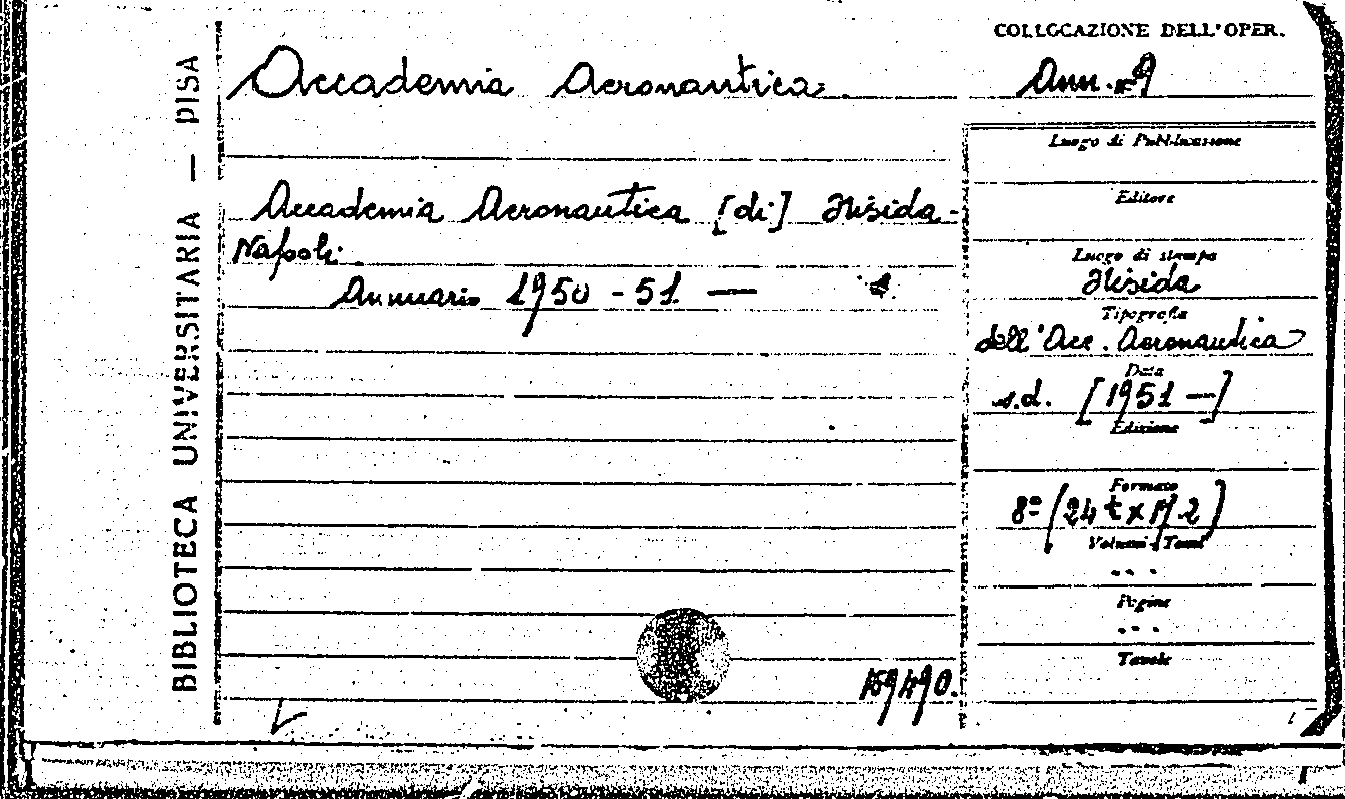 BIBLIOTECA UNIVERSITARIA — PISA
COLLOCAZIONE DELL'OPER.
Accademia Aeronautica.
Ann. 9
Accademia Aeronautica [di] Nisida -
Napoli.
Annuario 1950 - 51 —
Luogo di Pubblicazione
Editore
Luogo di stampa
Nisida
Tipografia
dell'Acc. Aeronautica
Data
s.d. [1951 —]
Edizione
Formato
8º (24 t x 17.2)
Volumi - Tomi
...
Pagine
...
Tavole